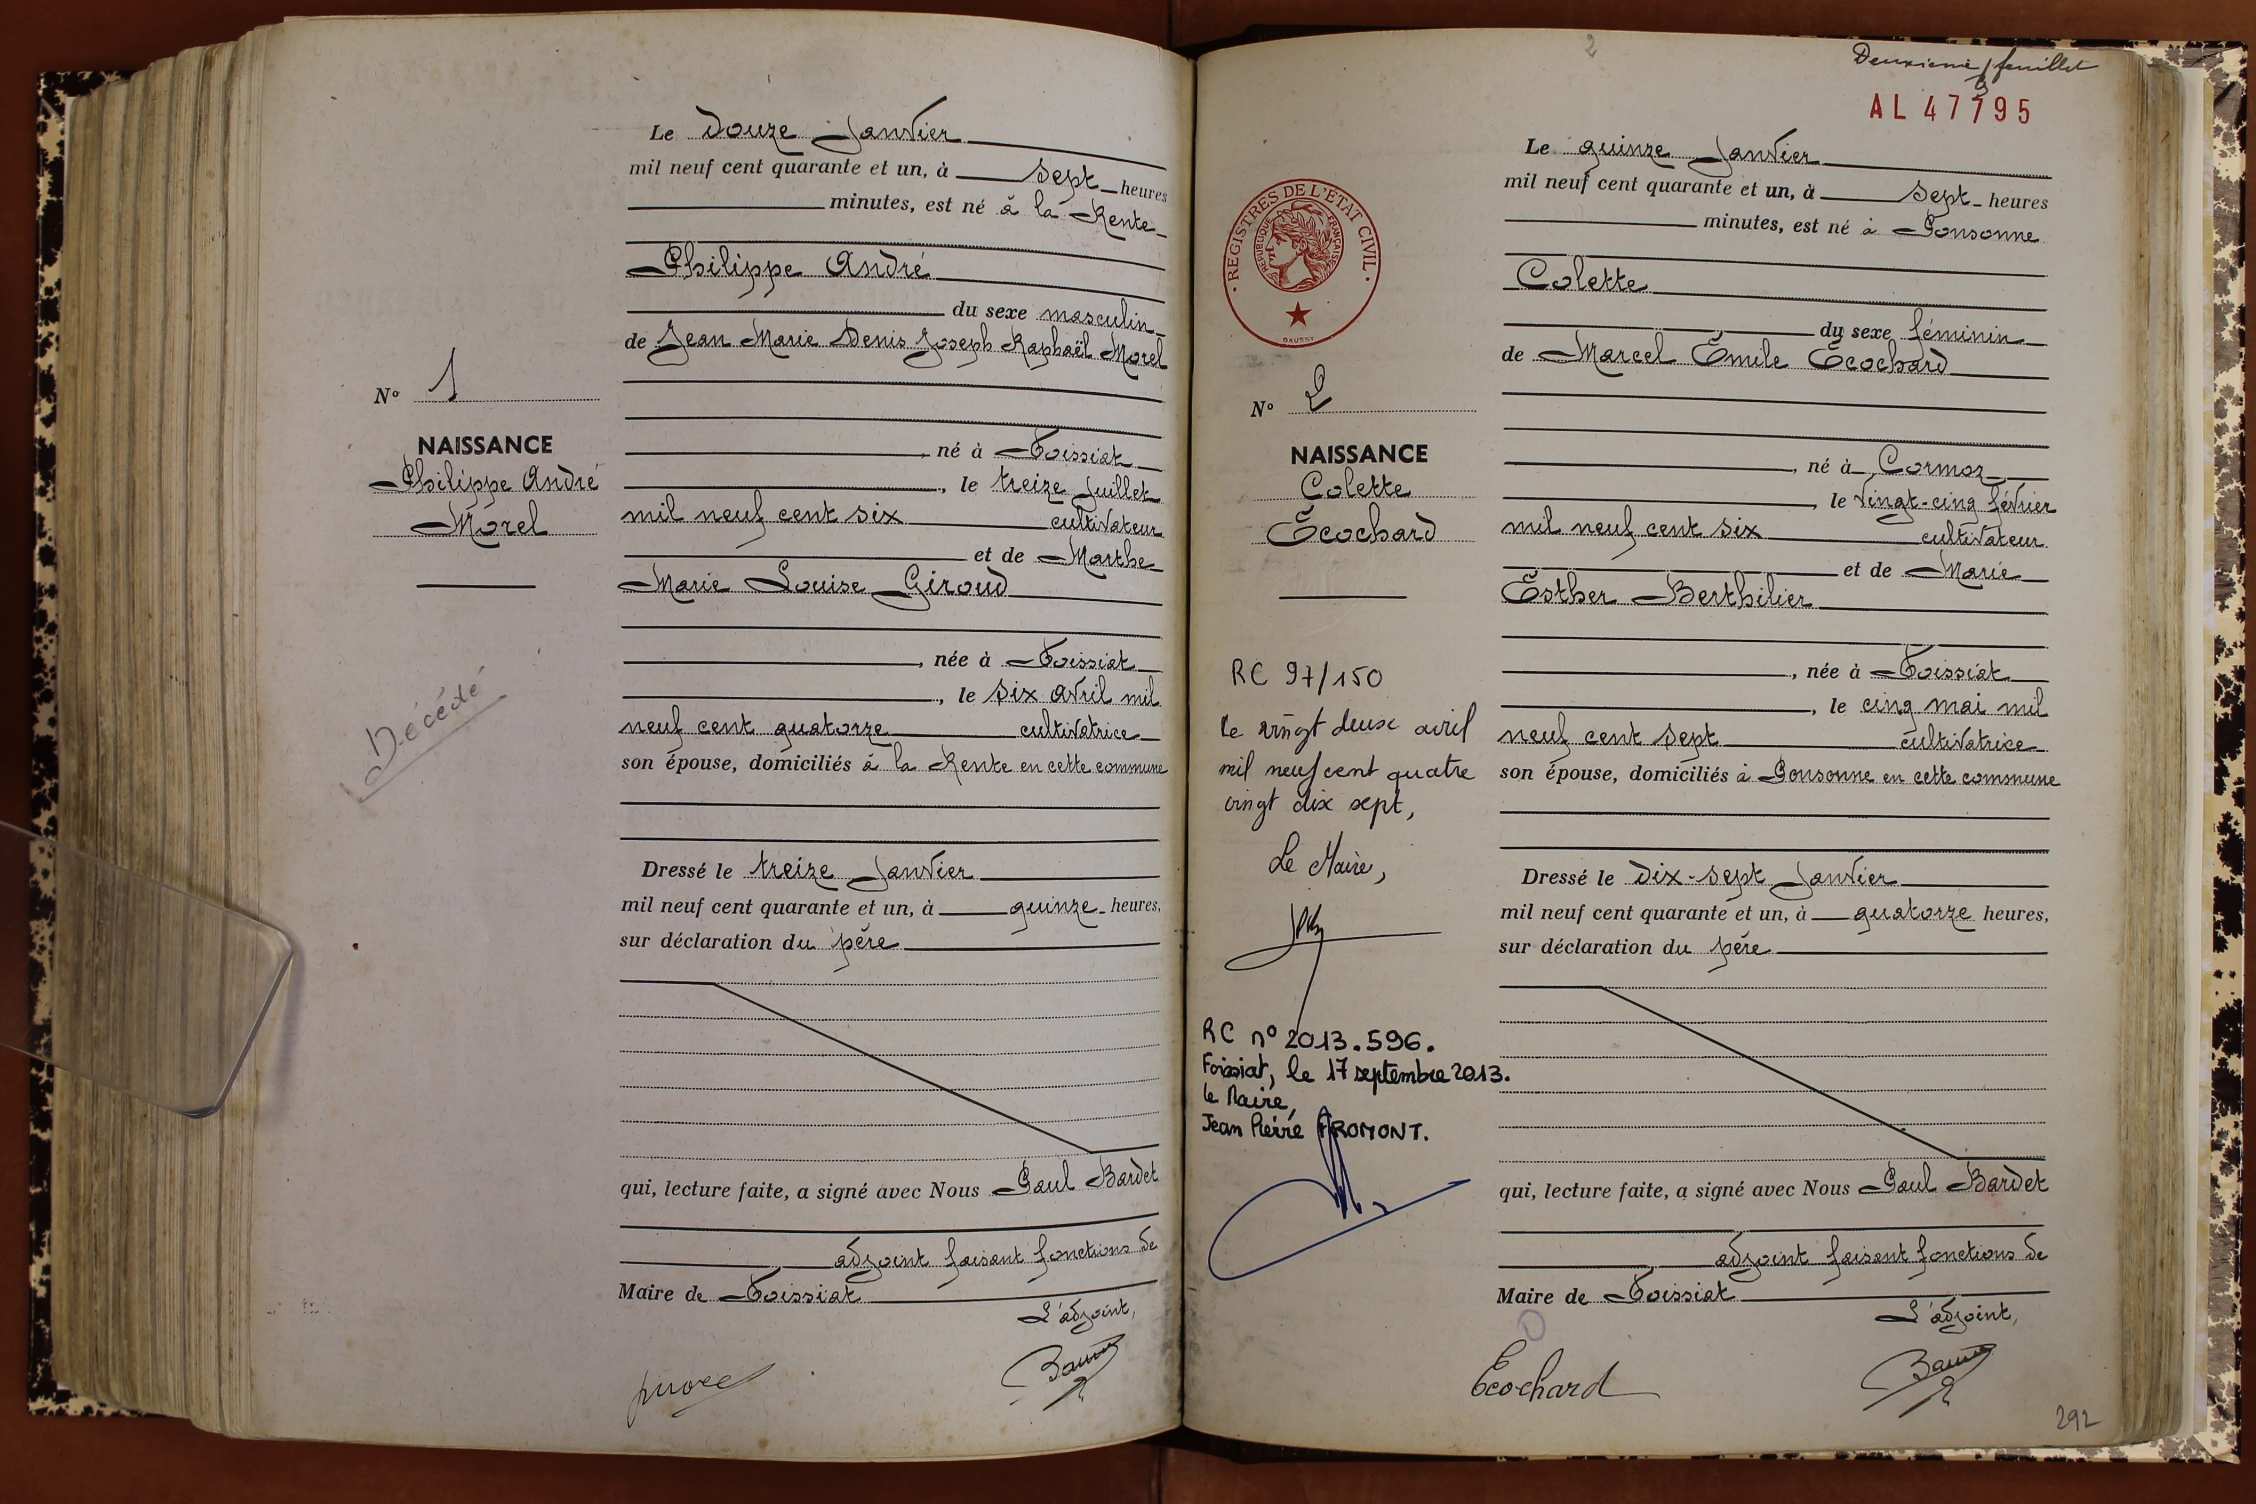 Le douze Janvier
mil neuf cent quarante et un, à sept heures
minutes, est né à la Rente
Philippe André
du sexe masculin
de Jean Marie Denis Joseph Raphaël Morel
N° 1
NAISSANCE
Philippe André
Morel
Décédé
né à Foissiat
, le treize Juillet
mil neuf cent six cultivateur
et de Marthe
Marie Louise Giroud
, née à Foissiat
, le six avril mil
neuf cent quatorze cultivatrice
son épouse, domiciliés à la Rente en cette commune
Dressé le treize Janvier
mil neuf cent quarante et un, à quinze heures,
sur déclaration du père
qui, lecture faite, a signé avec Nous Paul Bardet
adjoint faisant fonctions de
Maire de Foissiat
L'adjoint,
2
Deuxième feuillet
AL 47795
REGISTRES DE L'ÉTAT CIVIL
RÉPUBLIQUE FRANÇAISE
Le quinze Janvier
mil neuf cent quarante et un, à sept heures
minutes, est né à Ponsonne
Colette
du sexe féminin
de Marcel Émile Écochard
N° 2
NAISSANCE
Colette
Écochard
, né à Cormoz
, le vingt-cinq février
mil neuf cent six cultivateur
et de Marie
Esther Berthilier
, née à Foissiat
, le cinq mai mil
neuf cent sept cultivatrice
son épouse, domiciliés à Ponsonne en cette commune
Dressé le dix-sept Janvier
mil neuf cent quarante et un, à quatorze heures,
sur déclaration du père
RC 97/150
le vingt deux avril
mil neuf cent quatre
vingt dix sept,
Le Maire,
RC n° 2013.596.
Foissiat, le 17 septembre 2013.
le Maire,
Jean Pierre FROMONT.
qui, lecture faite, a signé avec Nous Paul Bardet
adjoint faisant fonctions de
Maire de Foissiat
L'adjoint,
Ecochard
292